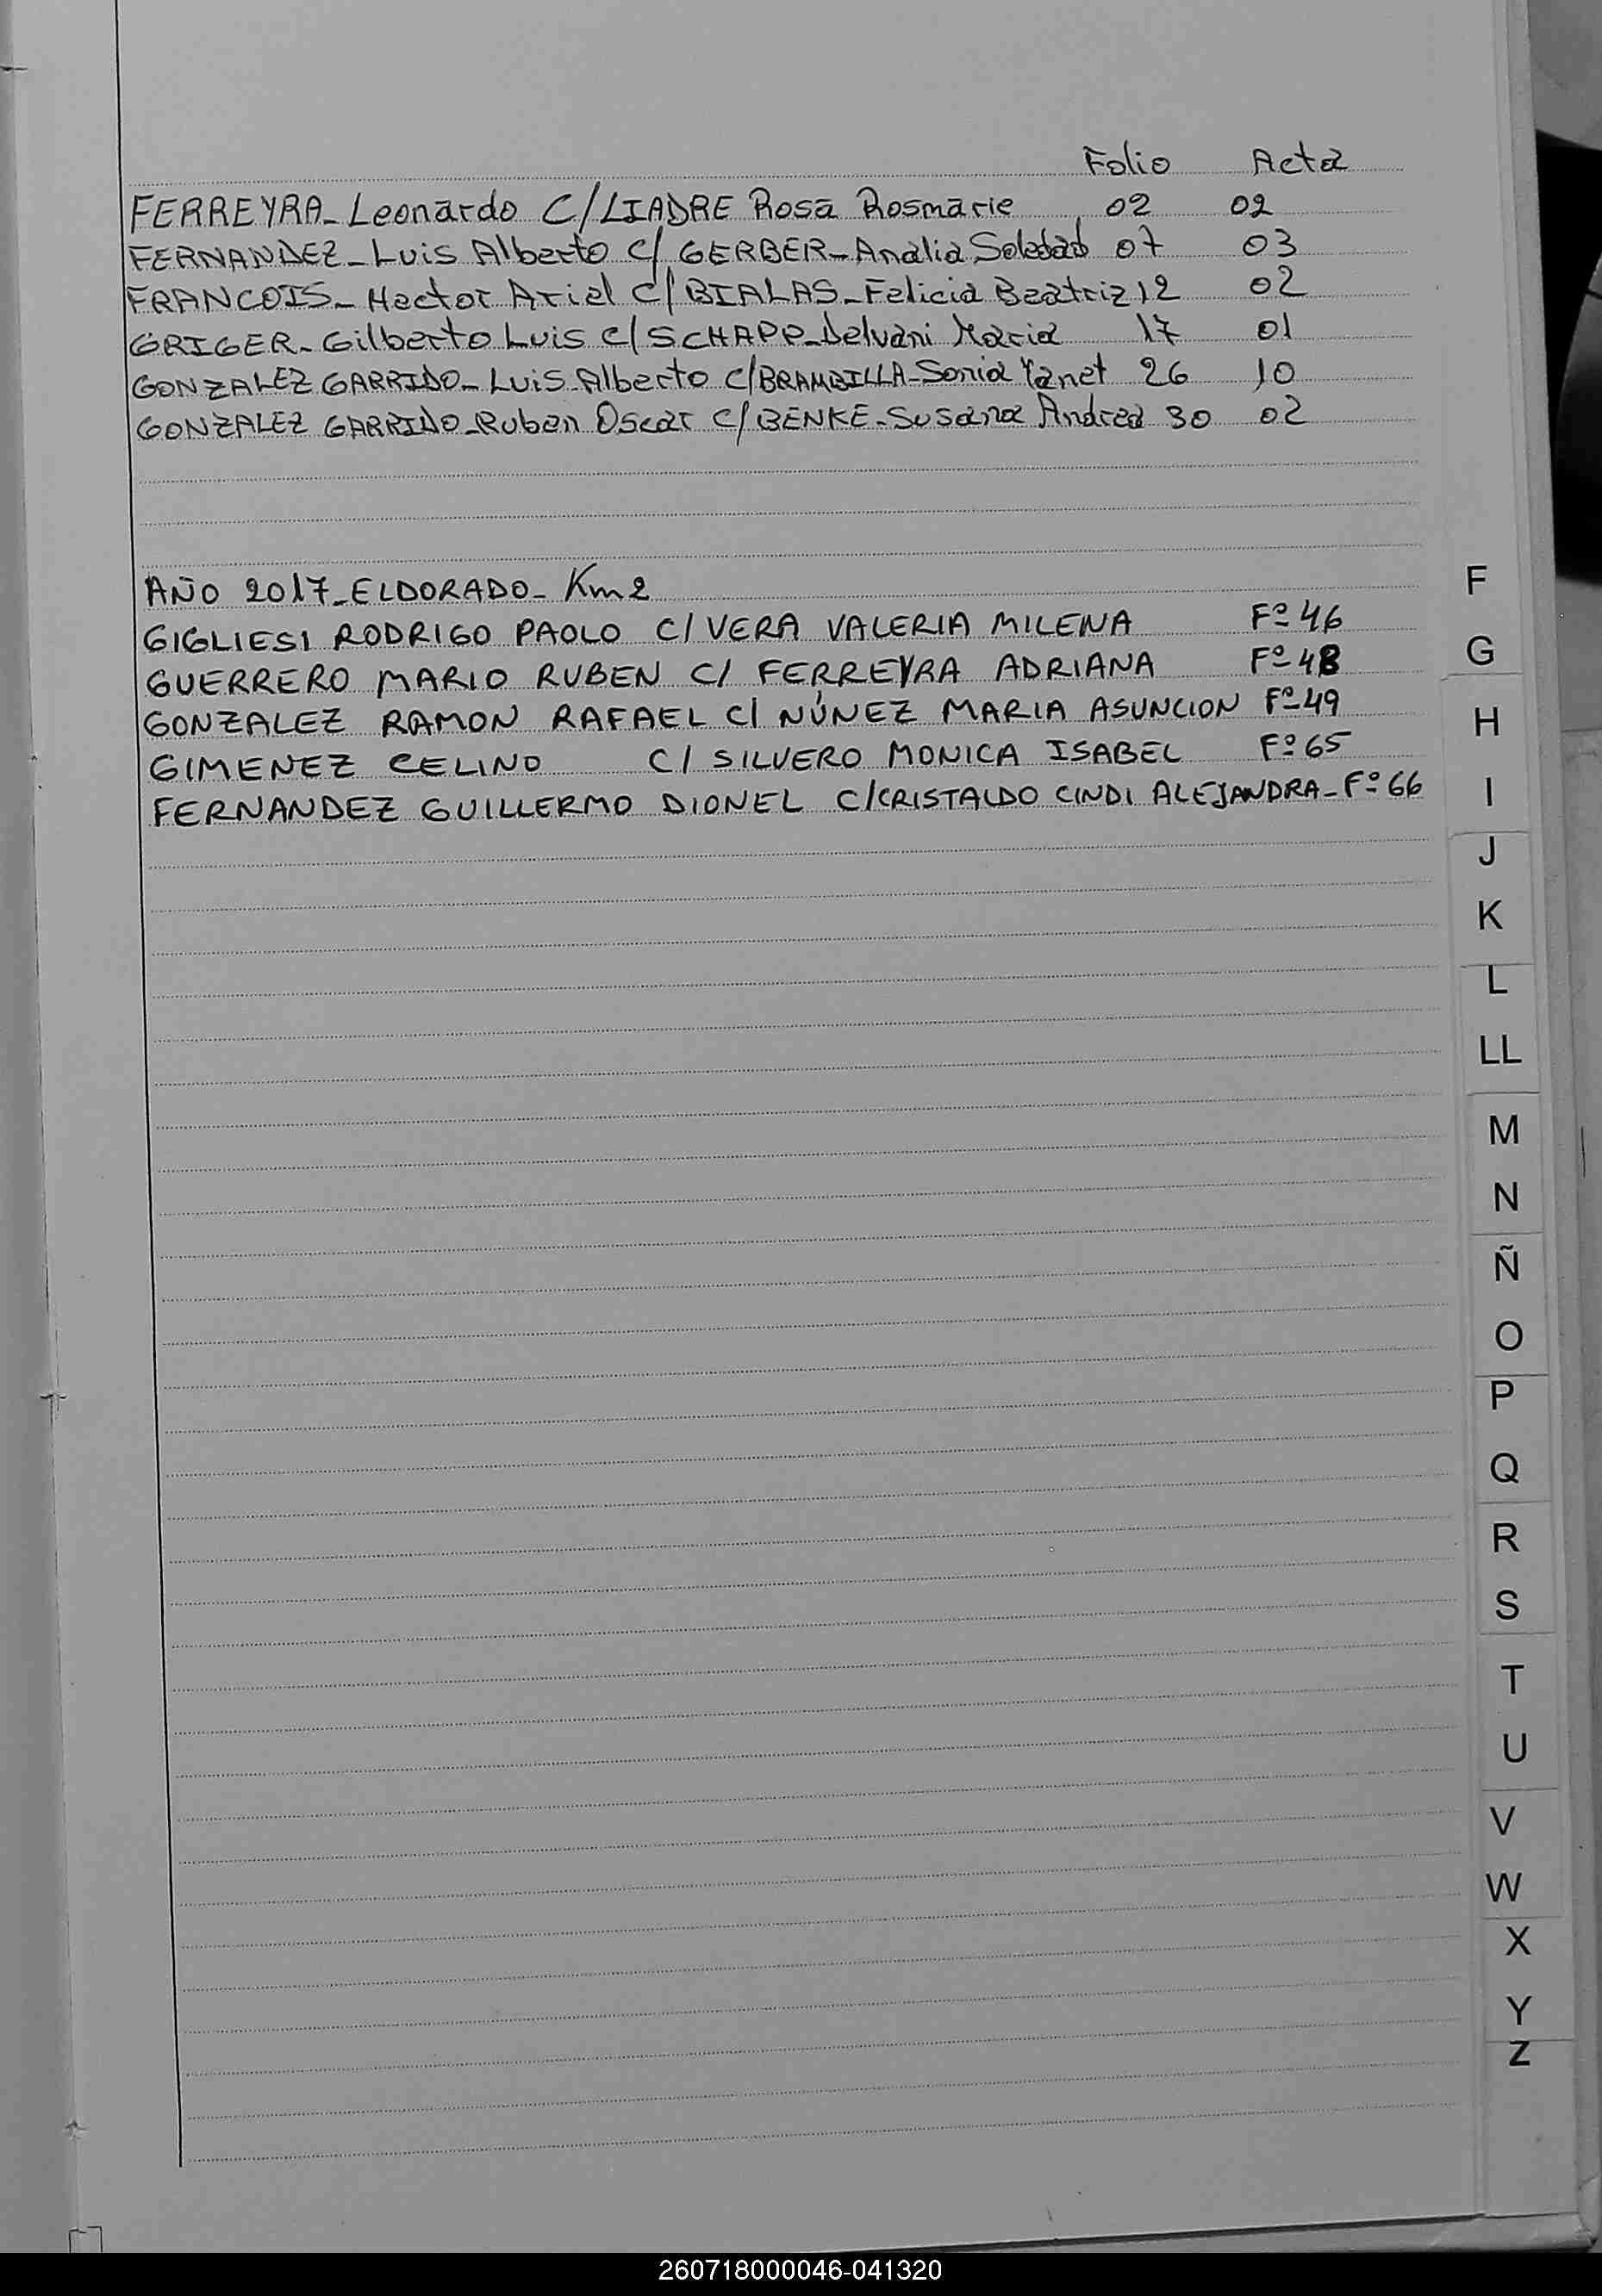 Folio Acta
FERREYRA_ Leonardo C/LIADRE Rosa Rosmarie 02 02
FERNANDEZ_ Luis Alberto C/ GERBER_ Analia Soledad 07 03
FRANCOIS_ Hector Ariel C/ BIALAS_ Felicia Beatriz 12 02
GRIGER_ Gilberto Luis C/ SCHAPP_ Delvani Maria 17 01
GONZALEZ GARRIDO_ Luis Alberto C/BRAMBILLA_ Sonia Yanet 26 10
GONZALEZ GARRIDO_ Ruben Oscar C/ BENKE_ Susana Andrea 30 02
AÑO 2017_ ELDORADO_ Km2
GIGLIESI RODRIGO PAOLO C/ VERA VALERIA MILENA Fº 46
GUERRERO MARIO RUBEN C/ FERREYRA ADRIANA Fº 48
GONZALEZ RAMON RAFAEL C/ NÚNEZ MARIA ASUNCION Fº 49
GIMENEZ CELINO C/ SILVERO MONICA ISABEL Fº 65
FERNANDEZ GUILLERMO DIONEL C/CRISTALDO CINDI ALEJANDRA_ Fº 66
F
G
H
I
J
K
L
LL
M
N
Ñ
O
P
Q
R
S
T
U
V
W
X
Y
Z
260718000046-041320